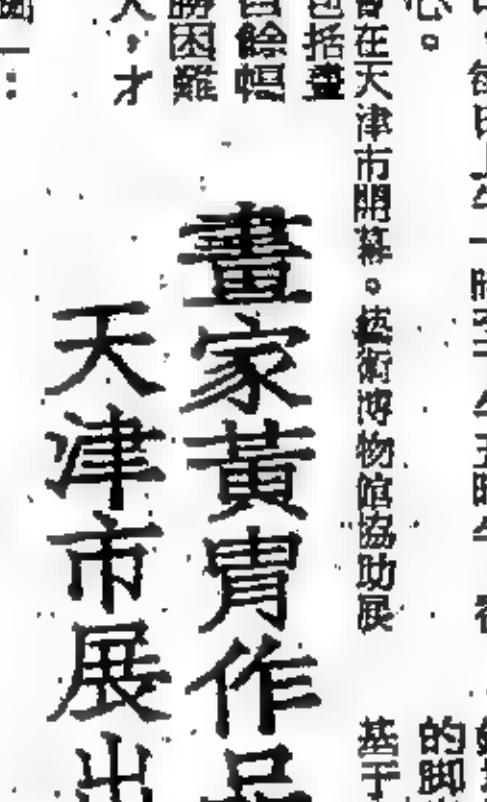 心。
在天津市開幕。藝術博物館協助展
括畫
餘幅
勝困難
人，才
畫家黃冑作品
天津市展出
的脚
基于